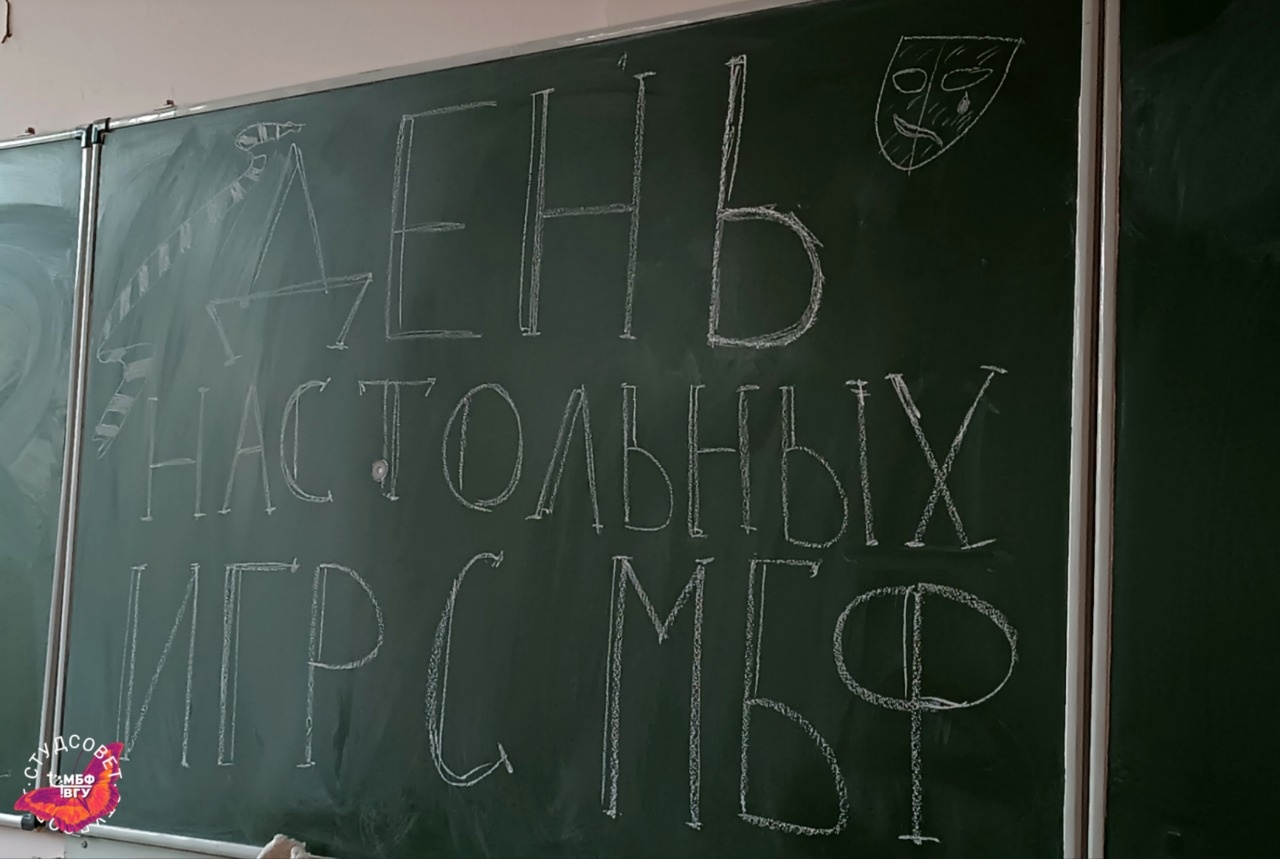 ДЕНЬ
НАСТОЛЬНЫХ
ИГР С МБФ
СТУДСОВЕТ
МБФ
ВГУ